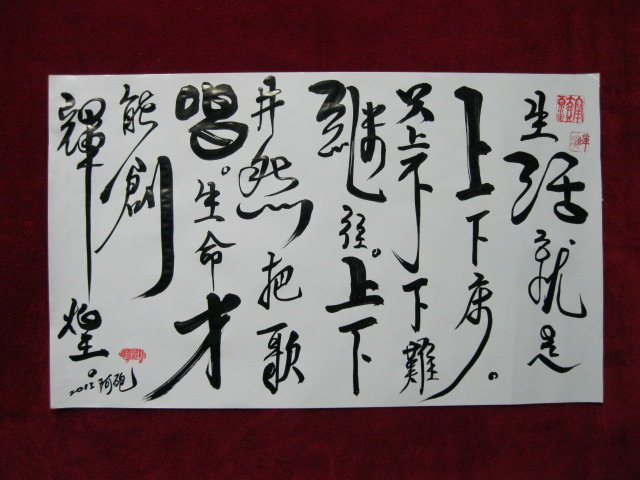 生活就是
上下床。
只上不下難
继往。上下
井然把歌
唱。生命才
能創
輝煌。
2013阿砲